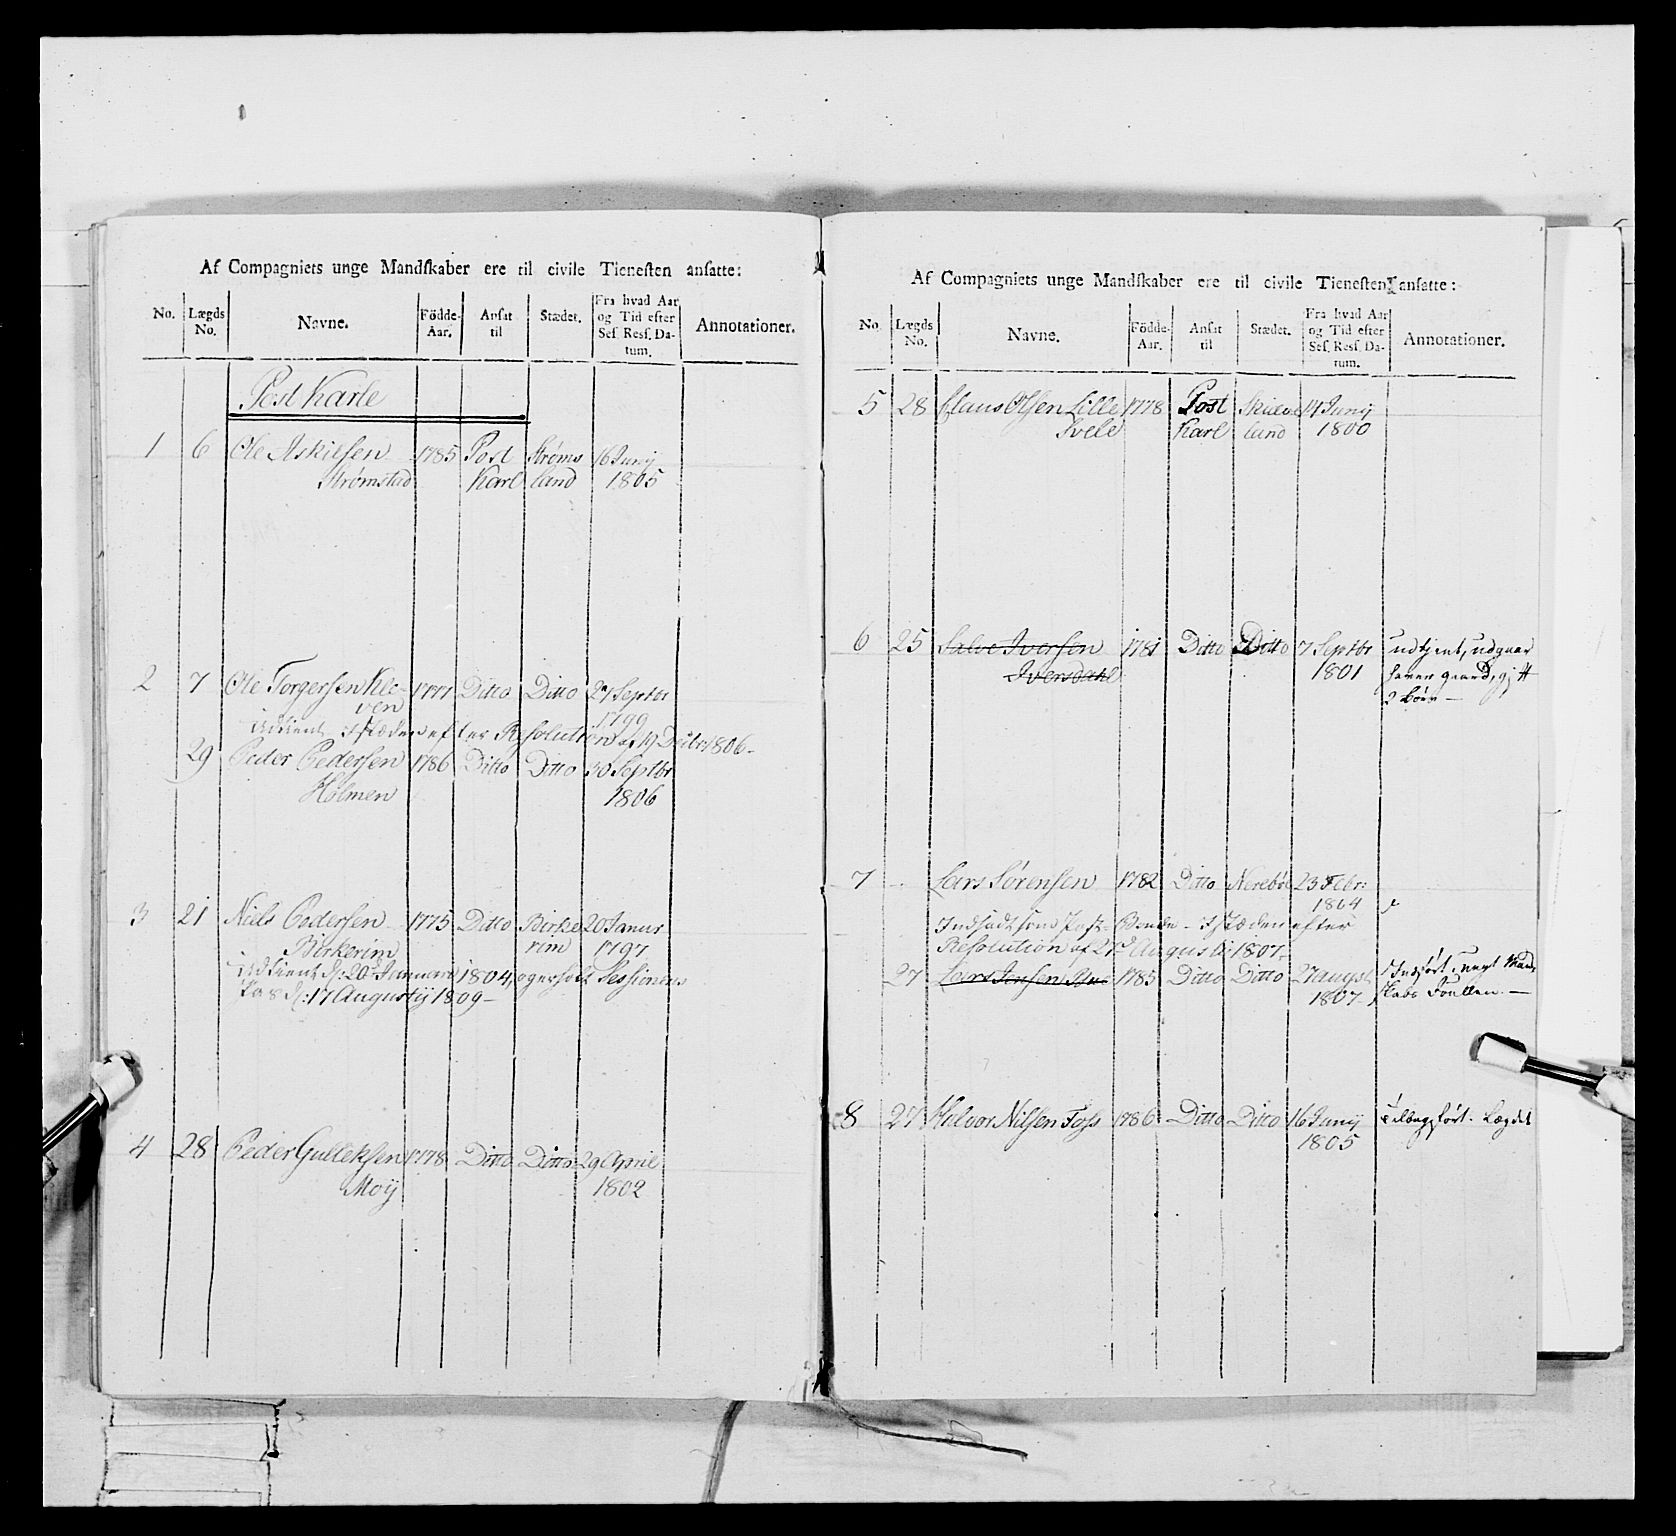 Af Compagniets unge Mandskaber ere til civile Tienesten ansatte:
No. Lægds No. Navne. Födde-Aar. Ansat til Stædet. Fra hvad Aar og Tid efter Ses. Resf. Datum. Annotationer.
Post Karle
1 6 Ole Askilsen 1785 Post Strøms 16 Junij
Strømstad Karl land 1805
2 7 Ole Torgersen Kle- 1777 Ditto Ditto 27 Septbr
ven 1799
Udtient, istæden efter Resolution af 19 Decbr 1806-
29 Peder Pedersen 1786 Ditto Ditto 30 Septbr
Holmen 1806
3 21 Niels Pedersen 1775 Ditto Birke 20 Januar
Birkerim rim 1797
Udtient d: 20 Januari 1804, Sessionens
Pas d: 17 Augustij 1809-
4 28 Peder Gulleksen 1778 Ditto Ditto 29 April
Moij 1802
Af Compagniets unge Mandskaber ere til civile Tienesten ansatte:
No. Lægds No. Navne. Födde-Aar. Ansat til Stædet. Fra hvad Aar og Tid efter Ses. Resf. Datum. Annotationer.
5 28 Claus Olsen Lille 1778 Post 14 Junij
Svele Karl land 1800
6 25 Salve Iversen 1781 Ditto Ditto 7 Septbr udtjent, udgaar
Iversdahl 1801
2 Börn -
7 Lars Sörensen 1782 Ditto 23 Febr:
1804
Indsadt som Post-Bonde - istæden efter
Resolution af 27de August 1807-
27 Lars 1785 Ditto Ditto 27 Augst Indfört
1807-
8 27 Halvor Nilsen Foss 1786 Ditto Ditto 16 Junij Tilbagefört. Lægdet
1805